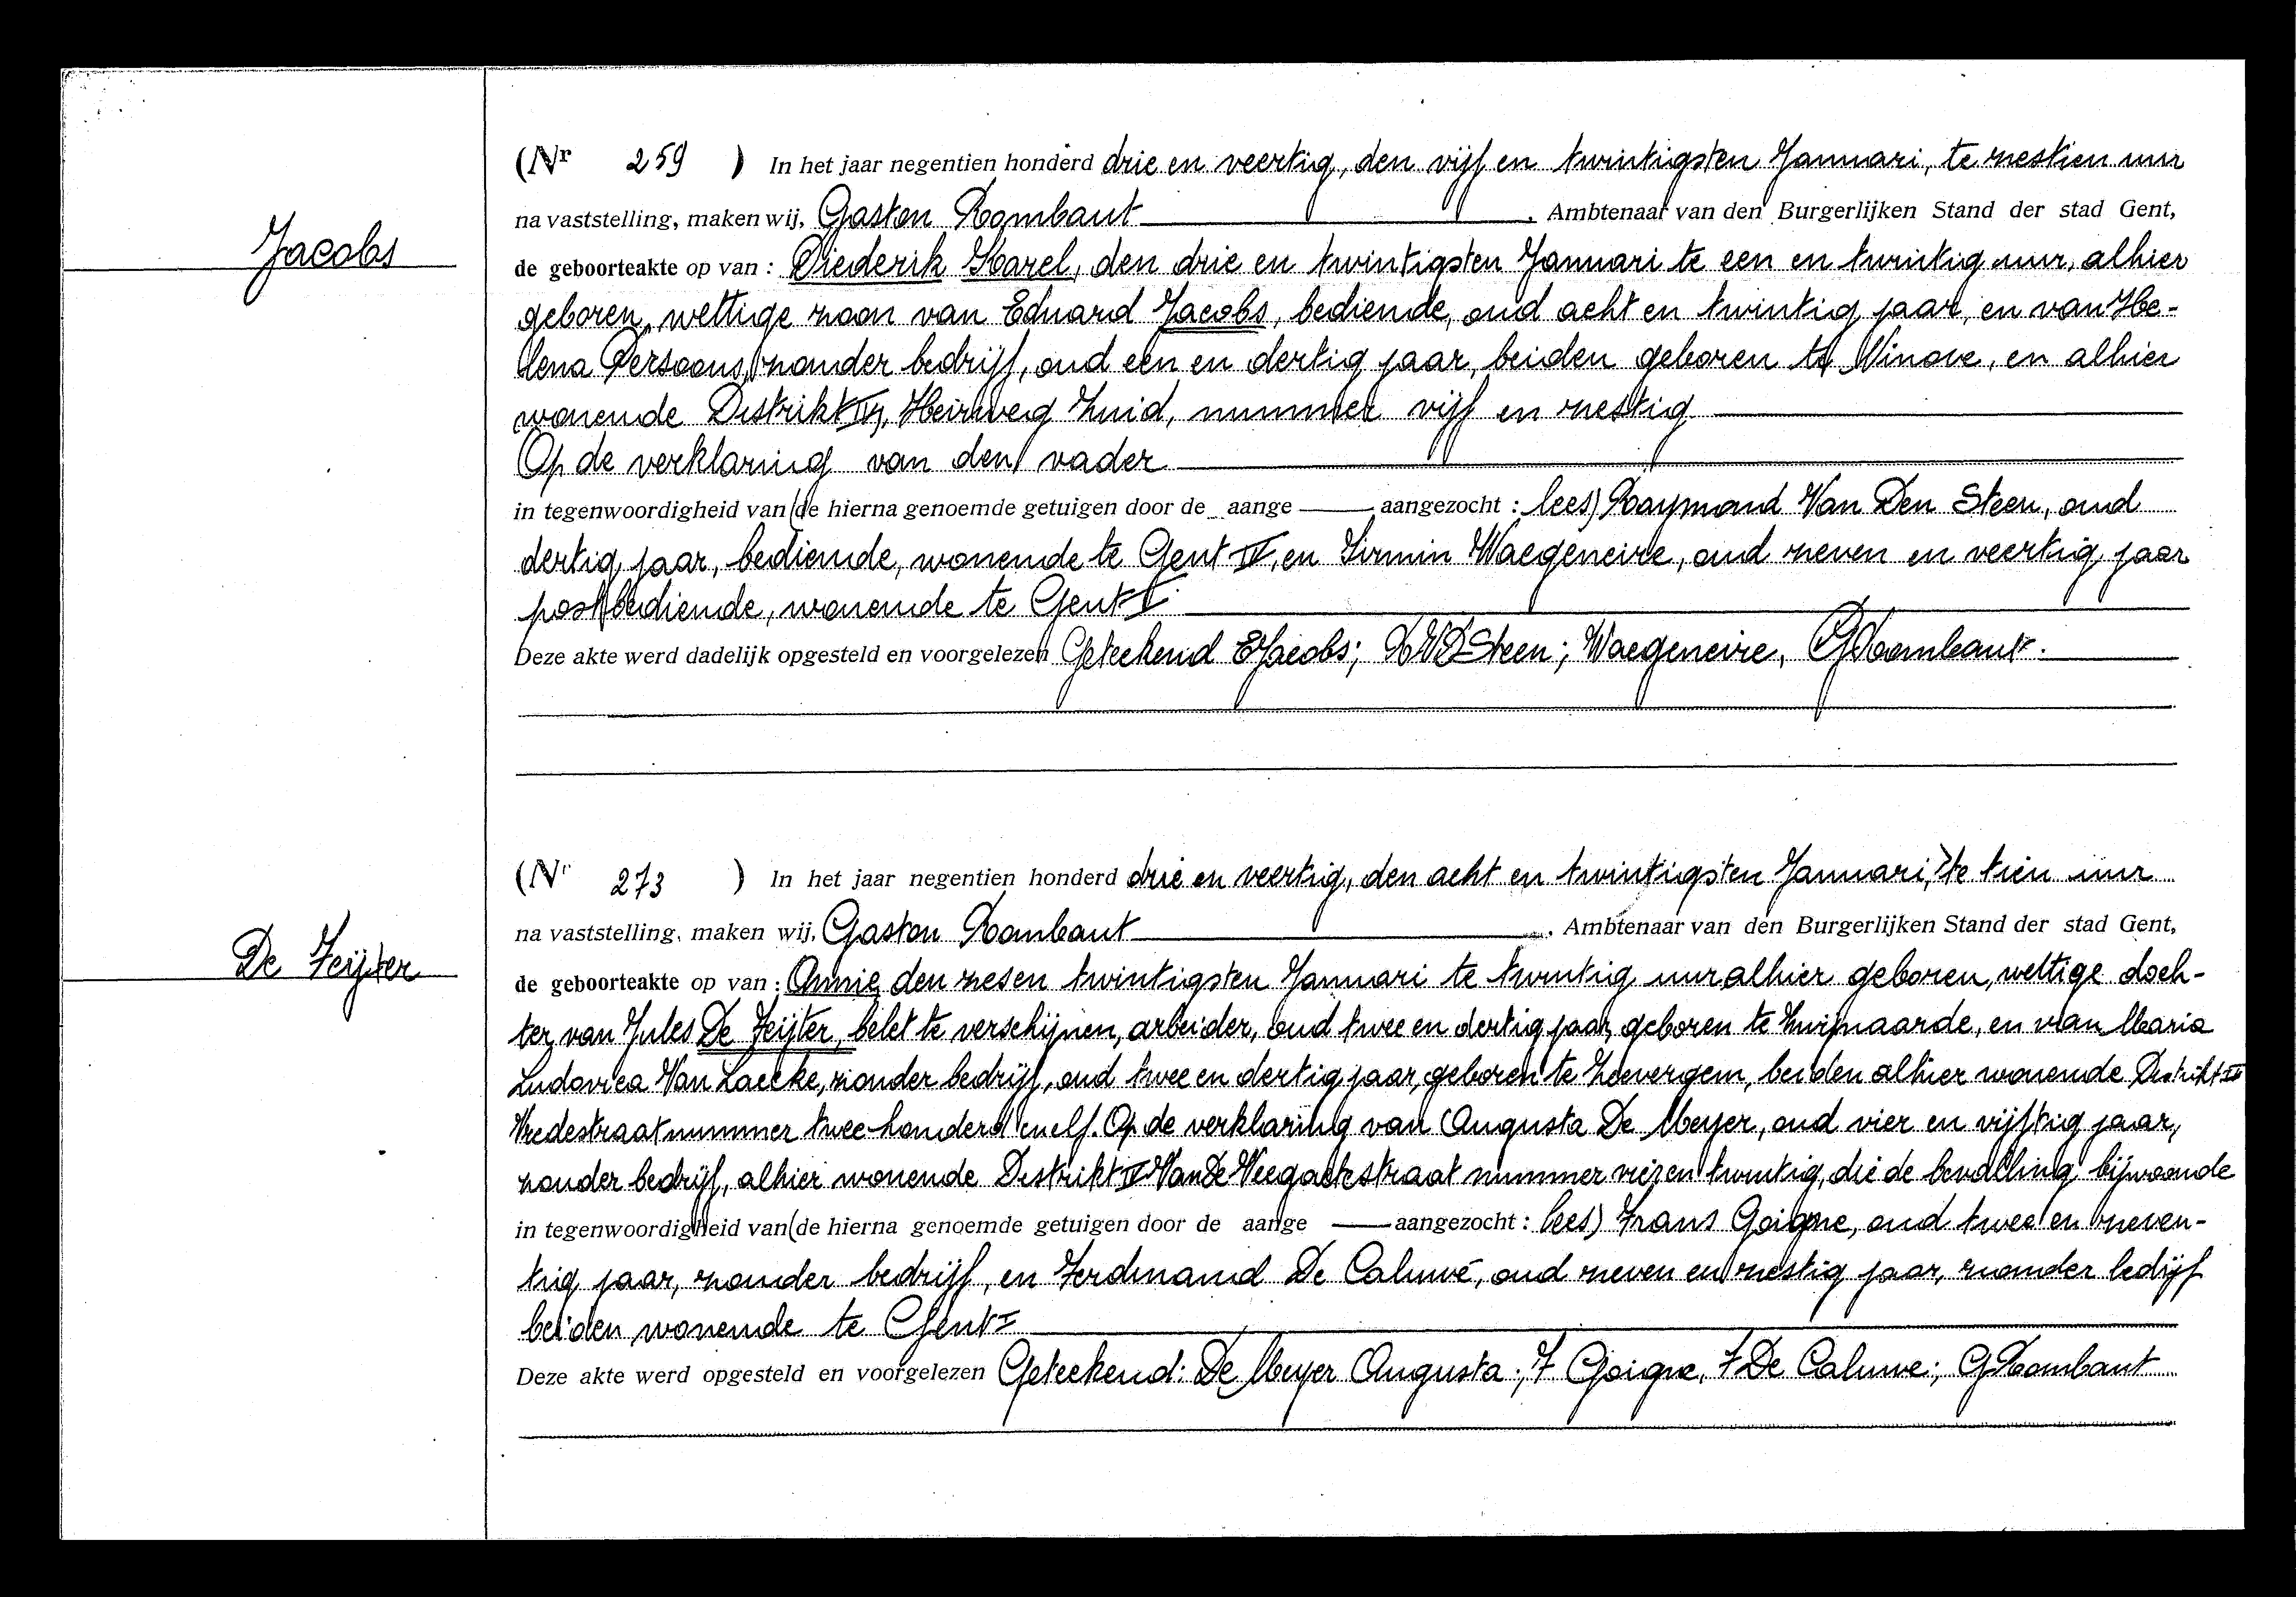 (Nr 259 ) In het jaar negentien honderd drie en veertig, den vijf en twintigsten Januari, te zestien uur
na vaststelling, maken wij, Gaston Rombaut, Ambtenaar van den Burgerlijken Stand der stad Gent,
Jacobs
de geboorteakte op van : Diederik Karel, den drie en twintigsten Januari te een en twintig uur, alhier
geboren, wettige zoon van Eduard Jacobs, bediende, oud acht en twintig jaar, en van He-
lena Persoons, zonder bedrijf, oud een en dertig jaar, beiden geboren te Ninove, en alhier
wonende Distrikt Heirweg Zuid, nummer vijf en zestig
Op de verklaring van den vader
in tegenwoordigheid van (de hierna genoemde getuigen door de aange aangezocht : lees) Raymond Van Den Steen, oud
dertig jaar, bediende, wonende te Gent IV, en Firmin Waegeneire, oud zeven en veertig jaar
postbediende, wonende te Gent I
Deze akte werd dadelijk opgesteld en voorgelezen Geteekend EJacobs; RVDSteen; Waegeneire, GRombaut.
(Nr 273 ) In het jaar negentien honderd drie en veertig, den acht en twintigsten Januari, te tien uur
na vaststelling, maken wij, Gaston Rombaut, Ambtenaar van den Burgerlijken Stand der stad Gent,
De Feijter
de geboorteakte op van : Annie, den zesen twintigsten Januari te twintig uur alhier geboren, wettige doch-
ter van Jules De Feijter, belet te verschijnen, arbeider, oud twee en dertig jaar, geboren te Zwijnaarde, en van Maria
Ludovica Van Laecke, zonder bedrijf, oud twee en dertig jaar, geboren te Zeevergem, beiden alhier wonende Distrikt II
Vredestraat nummer twee honderd en elf. Op de verklaring van Augusta De Meyer, oud vier en vijftig jaar,
zonder bedrijf, alhier wonende Distrikt II Van De Veegaetestraat nummer vier en twintig, die de bevalling bijwoonde
in tegenwoordigheid van (de hierna genoemde getuigen door de aange aangezocht : lees) Frans Goigne, oud twee en zeven-
tig jaar, zonder bedrijf, en Ferdinand De Caluwé, oud zeven en zestig jaar, zonder bedijf
beiden wonende te Gent I
Deze akte werd opgesteld en voorgelezen Geteekend: De Meyer Augusta; F Goigne, F De Caluwe; GRombaut